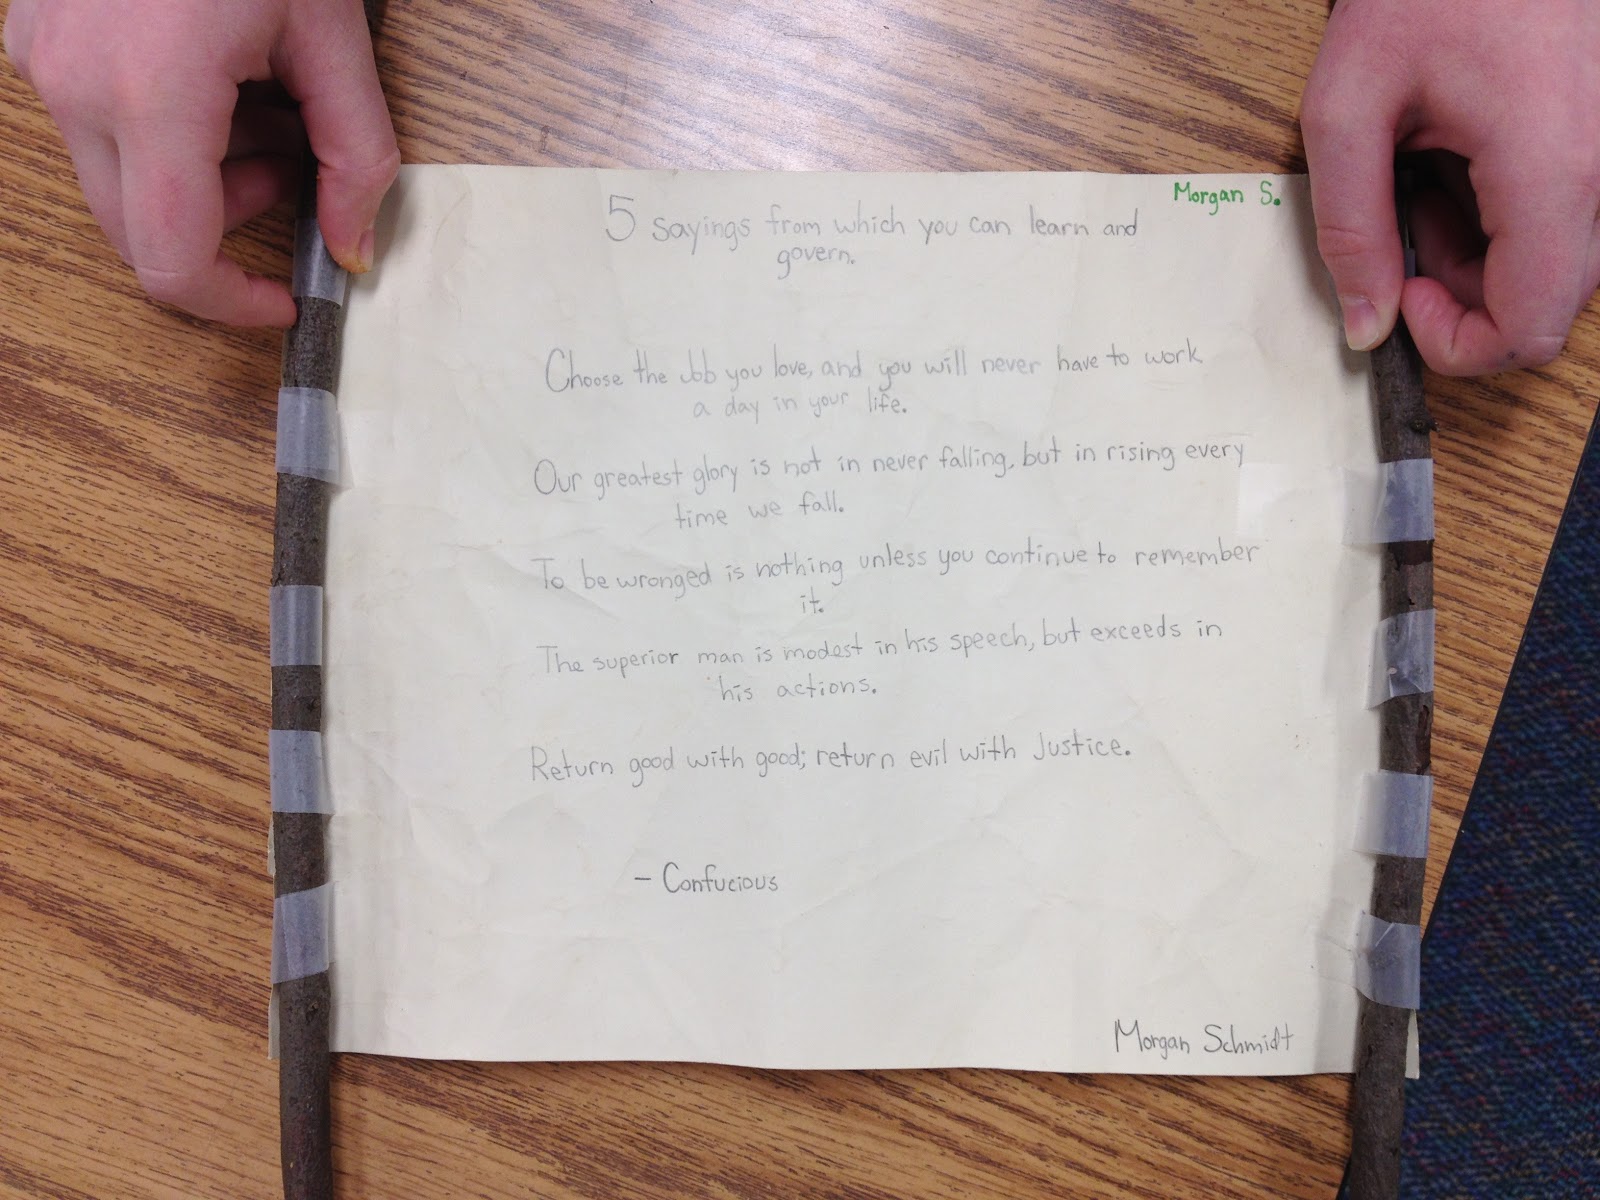 Morgan S.
5 sayings from which you can learn and
govern.
Choose the Job you love, and you will never have to work
a day in your life.
Our greatest glory is not in never falling, but in rising every
time we fall.
To be wronged is nothing unless you continue to remember
it.
The superior man is modest in his speech, but exceeds in
his actions.
Return good with good; return evil with Justice.
- Confucious
Morgan Schmidt